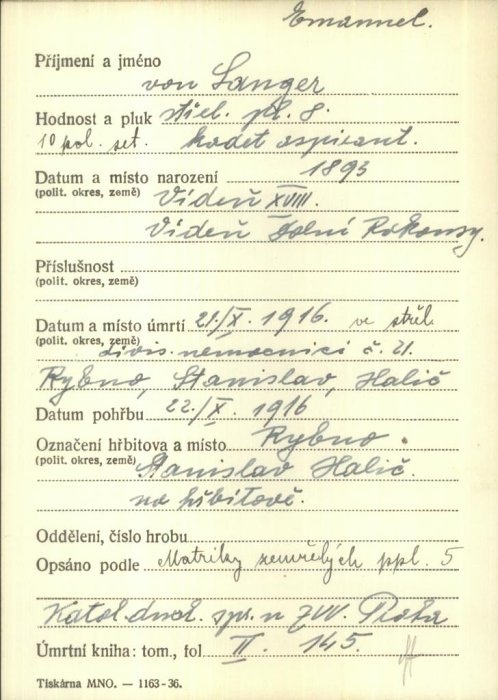 Emanuel.
Příjmení a jméno
von Langer
Hodnost a pluk střel. pl. 8.
10 pol. set. kadet aspirant.
Datum a místo narození 1893
(polit. okres, země) Vídeň XVIII.
Vídeň Dolní Rakousy.
Příslušnost
(polit. okres, země)
Datum a místo úmrtí 21./X. 1916. ve střel.
(polit. okres, země) divis. nemocnici č. 21.
Rybno, Stanislav, Halič
Datum pohřbu 22./X. 1916
Označení hřbitova a místo Rybno.
(polit. okres, země) Stanislav Halič.
na hřbitově.
Oddělení, číslo hrobu
Opsáno podle Matriky zemřelých ppl. 5
Katol. duch. spr. u ZVV. Praha
Úmrtní kniha: tom., fol II. 145.
Tiskárna MNO. — 1163-36.